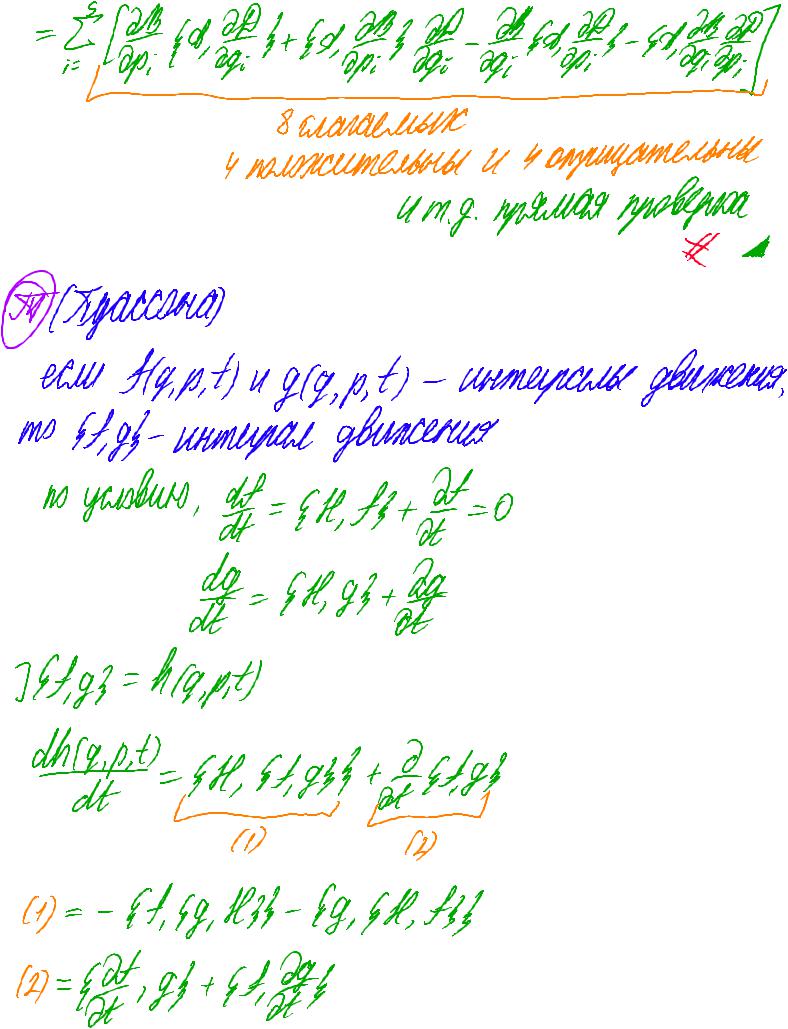 = Σ_{i=}^{s} [ ∂B/∂p_i {α, ∂D/∂q_i} + {α, ∂B/∂p_i} ∂D/∂q_i − ∂B/∂q_i {α, ∂D/∂p_i} − {α, ∂B/∂q_i ∂D/∂p_i ]
8 слагаемых
4 положительны и 4 отрицательны
и т.д. прямая проверка
#
(Пуассона)
если f(q,p,t) и g(q,p,t) – интегралы движения,
то {f,g} – интеграл движения
по условию, df/dt = {H, f} + ∂f/∂t = 0
dg/dt = {H, g} + ∂g/∂t
] {f,g} = h(q,p,t)
dh(q,p,t)/dt = {H, {f,g}} + ∂/∂t {f,g}
(1) (2)
(1) = − {f, {g, H}} − {g, {H, f}}
(2) = {∂f/∂t, g} + {f, ∂g/∂t}